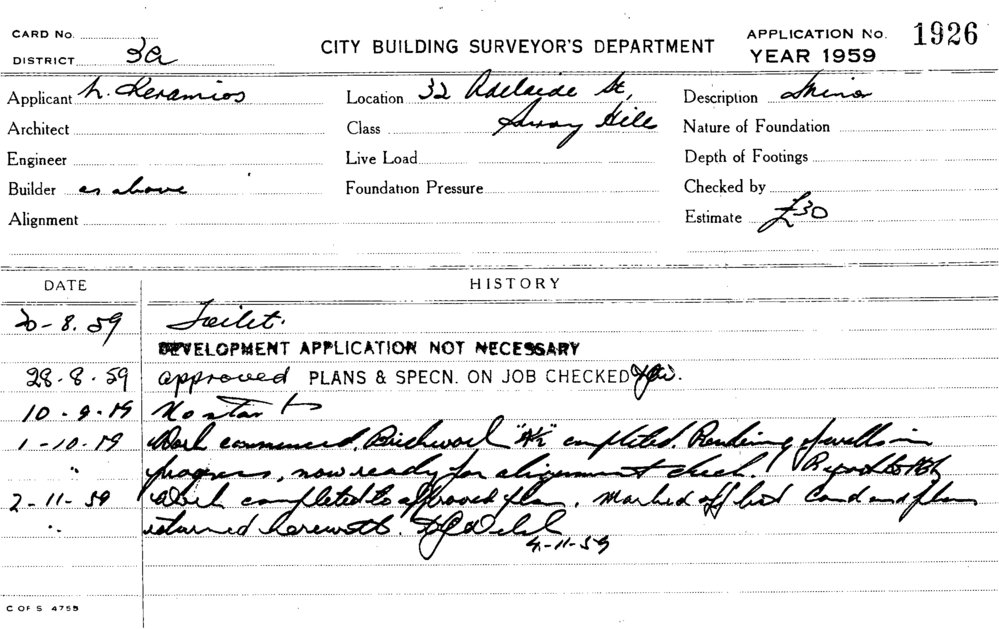 CARD No.
DISTRICT 3a
CITY BUILDING SURVEYOR'S DEPARTMENT
APPLICATION No. 1926
YEAR 1959
Applicant N. Keramios
Location 32 Adelaide St,
Description Minor
Architect
Class Surry Hills
Nature of Foundation
Engineer
Live Load
Depth of Footings
Builder as above
Foundation Pressure
Checked by
Alignment
Estimate £30
DATE HISTORY
20-8.59 Toilet.
DEVELOPMENT APPLICATION NOT NECESSARY
28-8-59 approved PLANS & SPECN. ON JOB CHECKED
10-9-59 No start
1-10-59 Work commenced. Brickwork "4½" completed. Rendering of walls in
" progress, now ready for alignment check.
2-11-59 Work completed to approved plan. Marked off list Card and plan
" returned herewith.
4-11-59
C OF S 475B